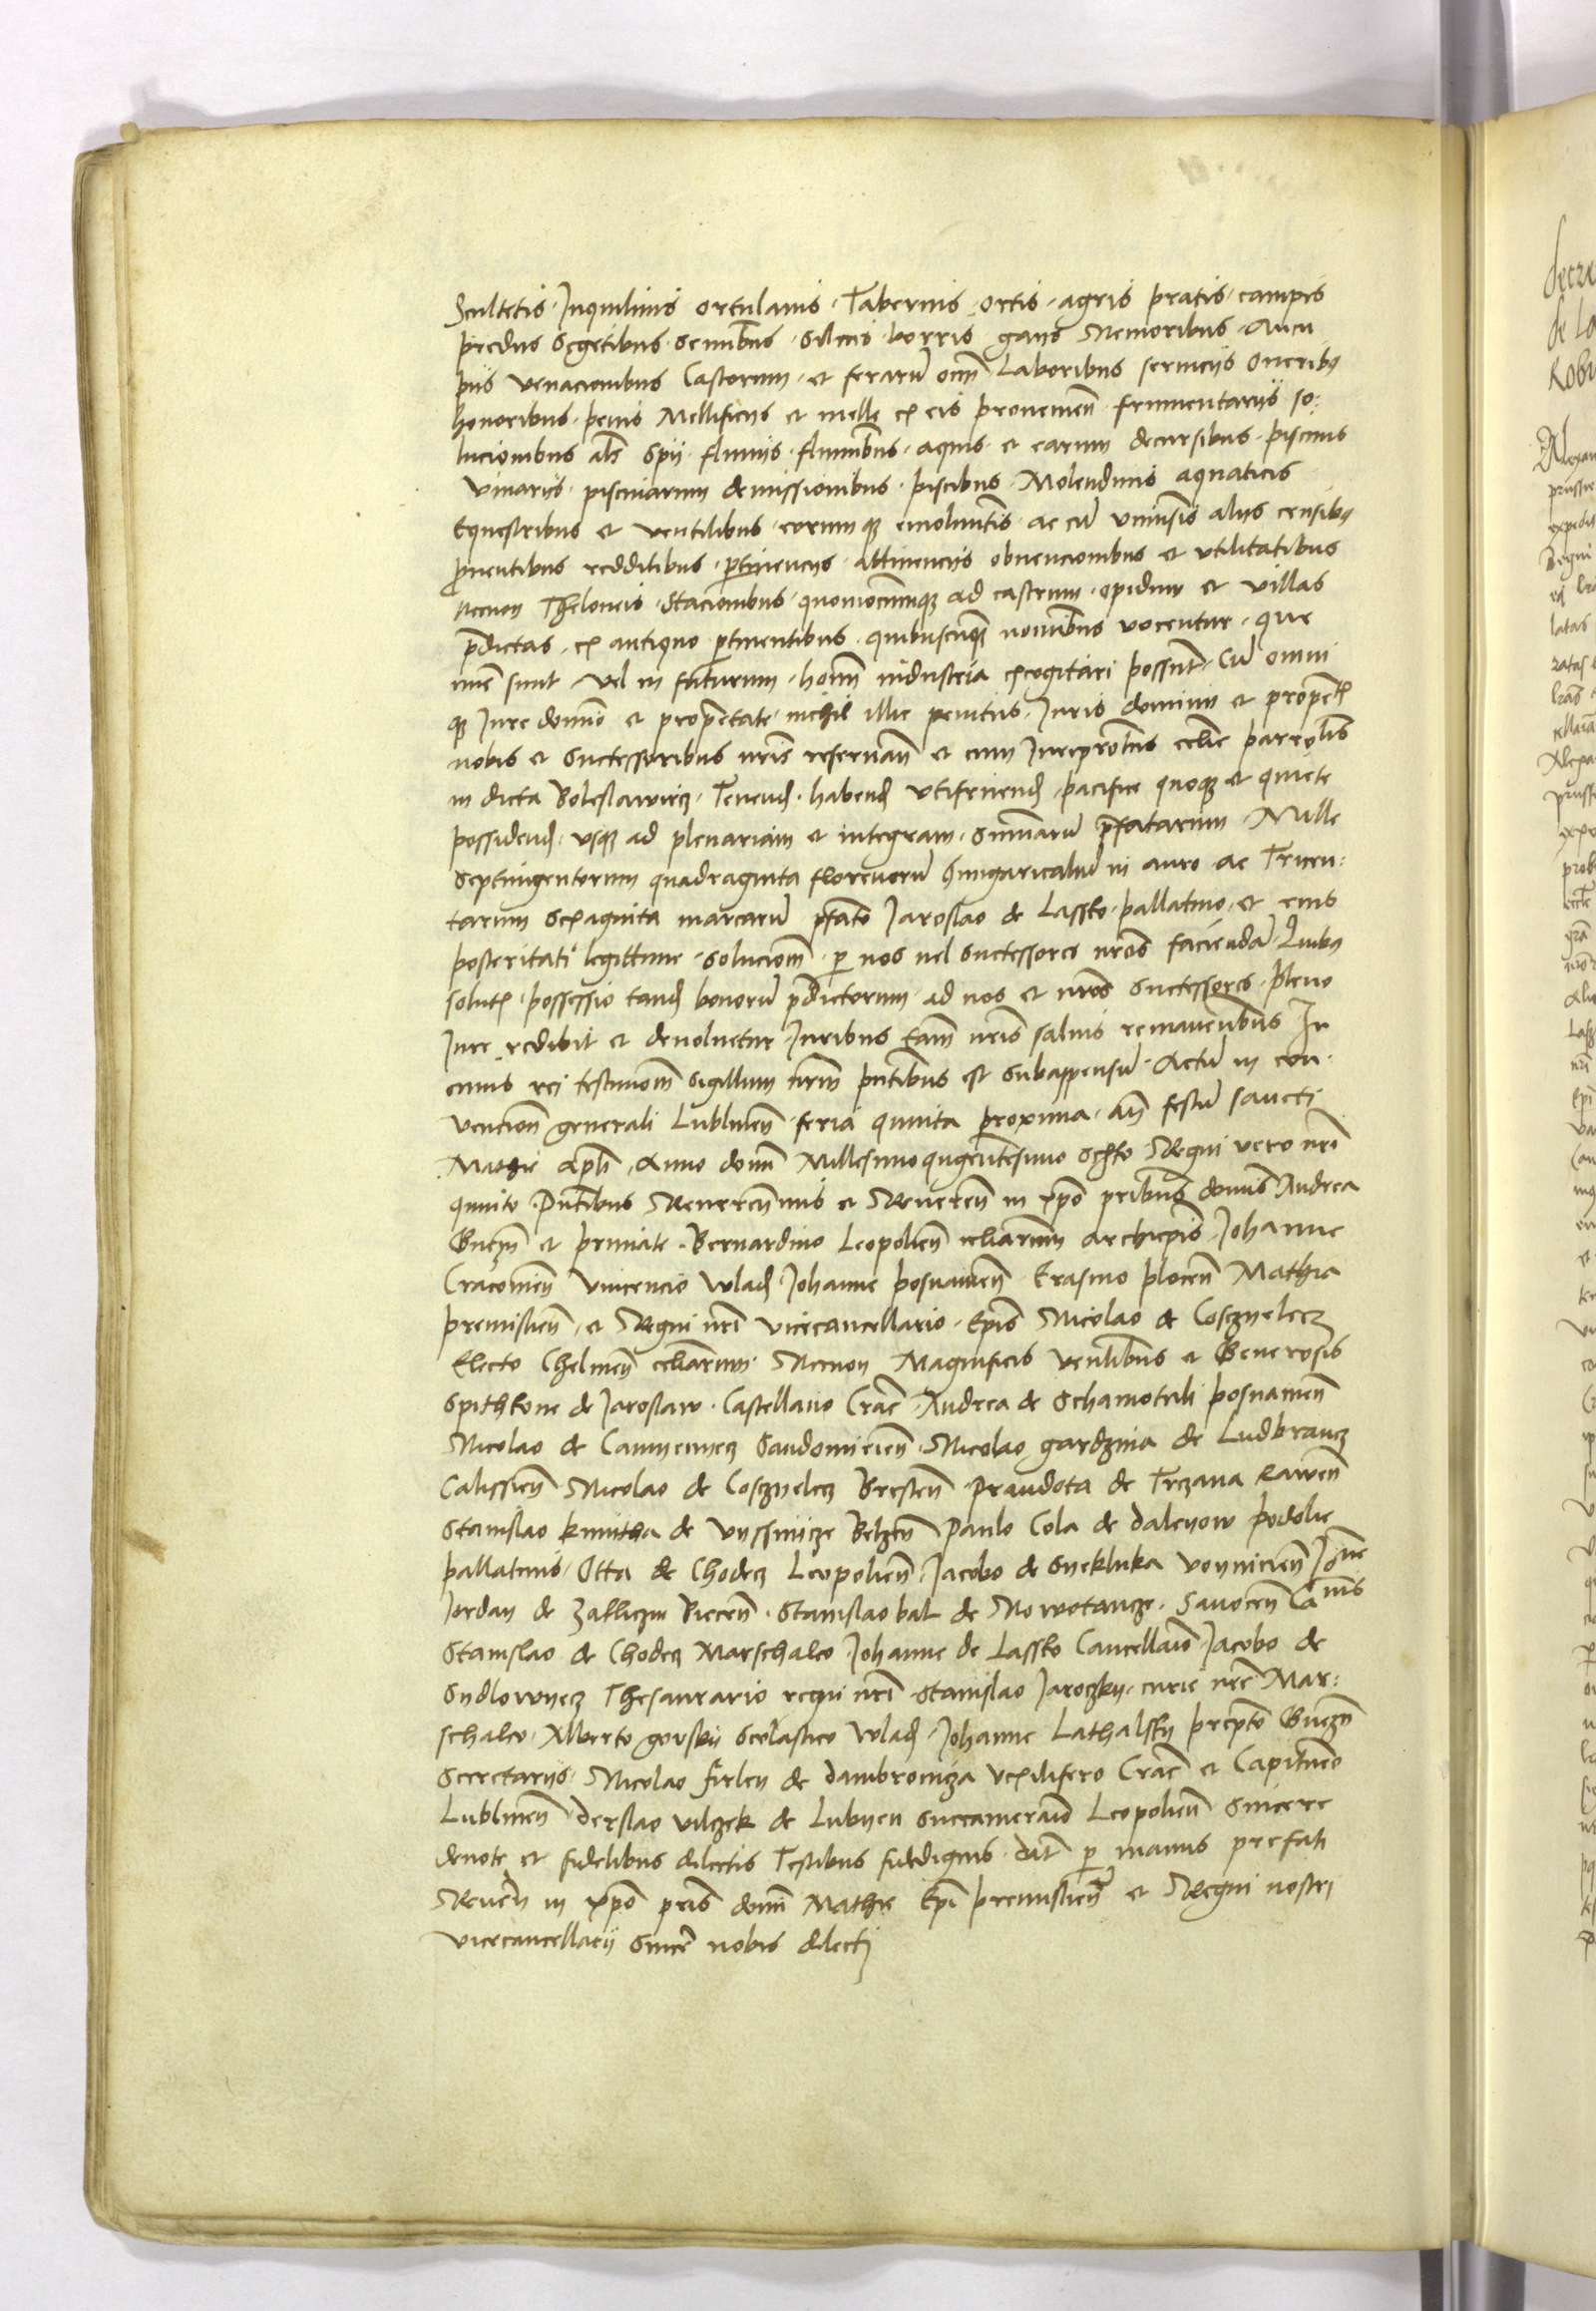 Scultetis · Inquilinis ortulanis · Tabernis · ortis · agris pratis · campis
prediis segetibus · seminibꝰ · siluis · borris gaiis Nemoribus · Aucu
piis venacionibus Castorum · et ferarū om̄ Laboribus seruiciis Oneribꝫ
honoribus · penis Mellificiis et melle ex eis prouenien̄ frumentariis so:
lucionibus als Spij · fluuiis · fluminibꝰ · aquis · et earum decursibus · piscinis
viuariis · pisciniarum demissionibus · piscibus · Molendinis aquaticis
Equestribus et ventilibus · eorumqꝫ emolumētis · ac cū vniuersis aliis censibꝫ
prouentibus redditibus · pertinenciis · attinenciis obuencionibus et vtilitatibus
Necnon Theloneis · Stacionibus · quomodocunqꝫ ad castrum · opidum et villas
p̄dictas · ex antiquo pertinentibus · quibuscunqꝫ nominibꝰ vocentur · que
nunc sunt vel in futurum · hominū industria excogitari possunt · Cū omni
qꝫ Iure dominio et proprietate · nichil illic penitus · Iuris dominii et proprietatꝭ
nobis et Successoribus nr̄is reseruan̄ et cum Iurepr̄otus eccl̄ie parrochialis
in dicta Boleslawiecz · Tenen̄d · haben̄d vtifruen̄d · pacifice quoqꝫ et quiete
possiden̄d · vsqꝫ ad plenariam et integram · summarū p̄fatarum · Mille
Septuingentorum quadraginta florenorū hungaricaliū in auro ac Trecen:
tarum Sexaginta marcarū p̄fato Jaroslao de Lassko · pallatino · et eius
posteritati legittime · solucionem · per nos vel Successores nr̄os faciendā · Quibꝫ
solutꝭ · possessio tan̄d bonorū p̄dictorum · ad nos et nr̄os successores · pleno
Iure redibit et deuoluetur · Iuribus tam̄ nr̄is saluis remanentibꝰ In
cuius rei testimoniū sigillum nr̄m pn̄tibus est Subappensū · Actū in con:
uencione generali Lublinen̄ · feria quinta proxima · an̄ festū sancti
Mathie Apl̄i · Anno domī Millesimoquingentesimo sexto Regni vero nr̄i
quinto · Pn̄tibus Reuerendissimis et Reueren̄ in xp̄o pribus domīs Andrea
Gnezn̄ et primate · Bernardino Leopolien̄ eccliarum archiep̄is · Johanne
Cracouien̄ Vincencio wlad̄ · Johanne posnanien̄ · Erasmo plocen̄ Mathia
premislien̄ · et Regni nr̄i vicecancellario · Ep̄is Nicolao de Cosczyelecz
Electo Chelmen̄ eccliarum · Necnon Magnificis venlibꝰ et Generosis
Spithkone de Jaroslaw · Castellano Crac̄ · Andrea de Schamotuli posnanien̄
Nicolao de Camyenyecz Sandomirien̄ · Nicolao gardzina de Ludbrancz
Calissien̄ · Nicolao de Cosczyelecz Bresten̄ · Prandota de Trczana Rawen̄
Stanislao kmitha de Vyssnicze Belzen̄ Paulo Cola de daleyow podolie
pallatinis · Otta de Chodecz Leopolien̄ · Jacobo de Syekluka voynicien̄ Joh̄ne
Jordan de zakliczin Biecen̄ · Stanislao bal de Nowotancze · Sanocen̄ Ca̅nis
Stanislao de Chodecz Marschalco · Johanne de Lassko Cancellario · Jacobo de
Sydlowyecz Thesaurario regni nr̄i · Stanislao Jaroczky · curie nr̄e Mar:
schalco · Alberto gorskij Scolastico wlad̄ · Johanne Lathalsky prepto Gnezn̄
Secretariis · Nicolao firley de dambrowicza vexilifero Crac̄ et Capitaneo
Lublinen̄ · derslao vilczek de Lubyen Succamerario Leopolien̄ Sincere
deuote et fidelibus dilectis Testibus fidedignis · dat̄ per manus prefati
Reueren̄ in xp̄o pris domī Mathie Ep̄i premislien̄ et Regni nostrj
vicecancellarij Sincer̄ nobis dilectj